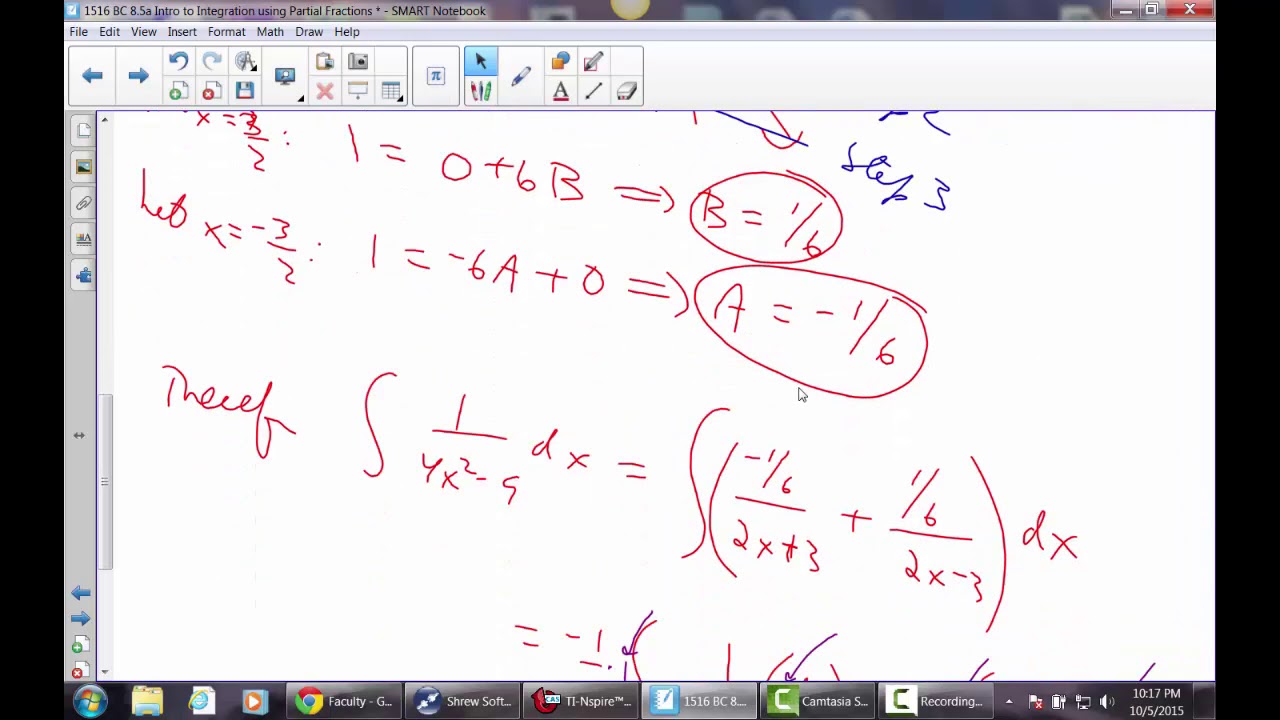 1516 BC 8.5a Intro to Integration using Partial Fractions * - SMART Notebook
File Edit View Insert Format Math Draw Help
step 3
x = 3/2 : 1 = 0 + 6B ⟹ B = 1/6
Let x = -3/2 : 1 = -6A + 0 ⟹ A = -1/6
Theref ∫ 1/(4x² - 9) dx = ∫ ( (-1/6)/(2x+3) + (1/6)/(2x-3) ) dx
= -1
Faculty - G...
Shrew Soft...
TI-Nspire™...
1516 BC 8....
Camtasia S...
Recording...
10:17 PM
10/5/2015